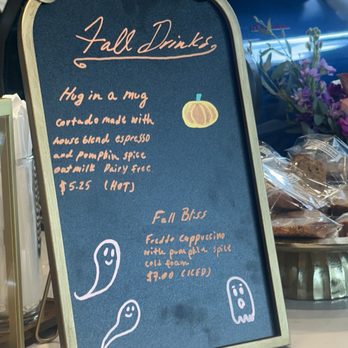 Fall Drinks
Hug in a mug
Cortado made with
house blend espresso
and pumpkin spice
oatmilk Dairy Free
$5.25 (HOT)
Fall Bliss
Freddo Cappuccino
with pumpkin spice
cold foam
$7.00 (ICED)